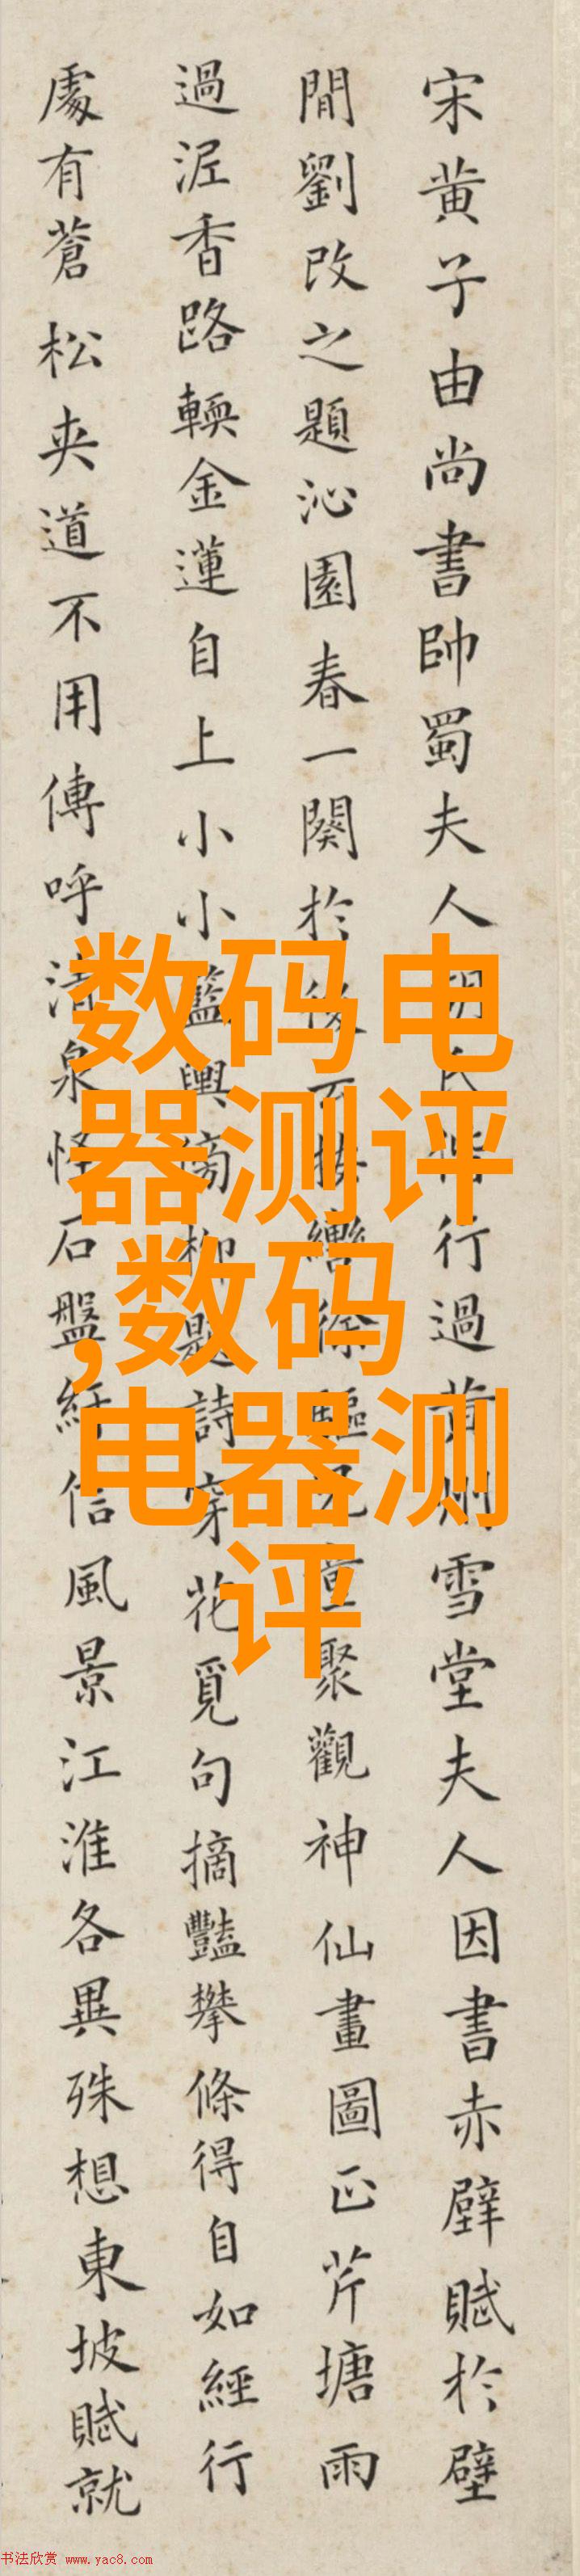 宋黄子由尚書帥蜀夫人胡氏偕行過黄州雪堂夫人因書赤壁賦於壁
間劉改之題沁園春一闋於後按轡徐驅兒童聚觀神仙畫圖正芹塘雨
過泥香路輭金蓮自上小小籃輿傍柳題詩穿花覓句摘豔攀條得自如經行
處有蒼松夾道不用傳呼清泉怪石盤紆信風景江淮各異殊想東坡賦就
数码电
器测评
,数码
电器测
评
书法欣赏 www.yac8.com